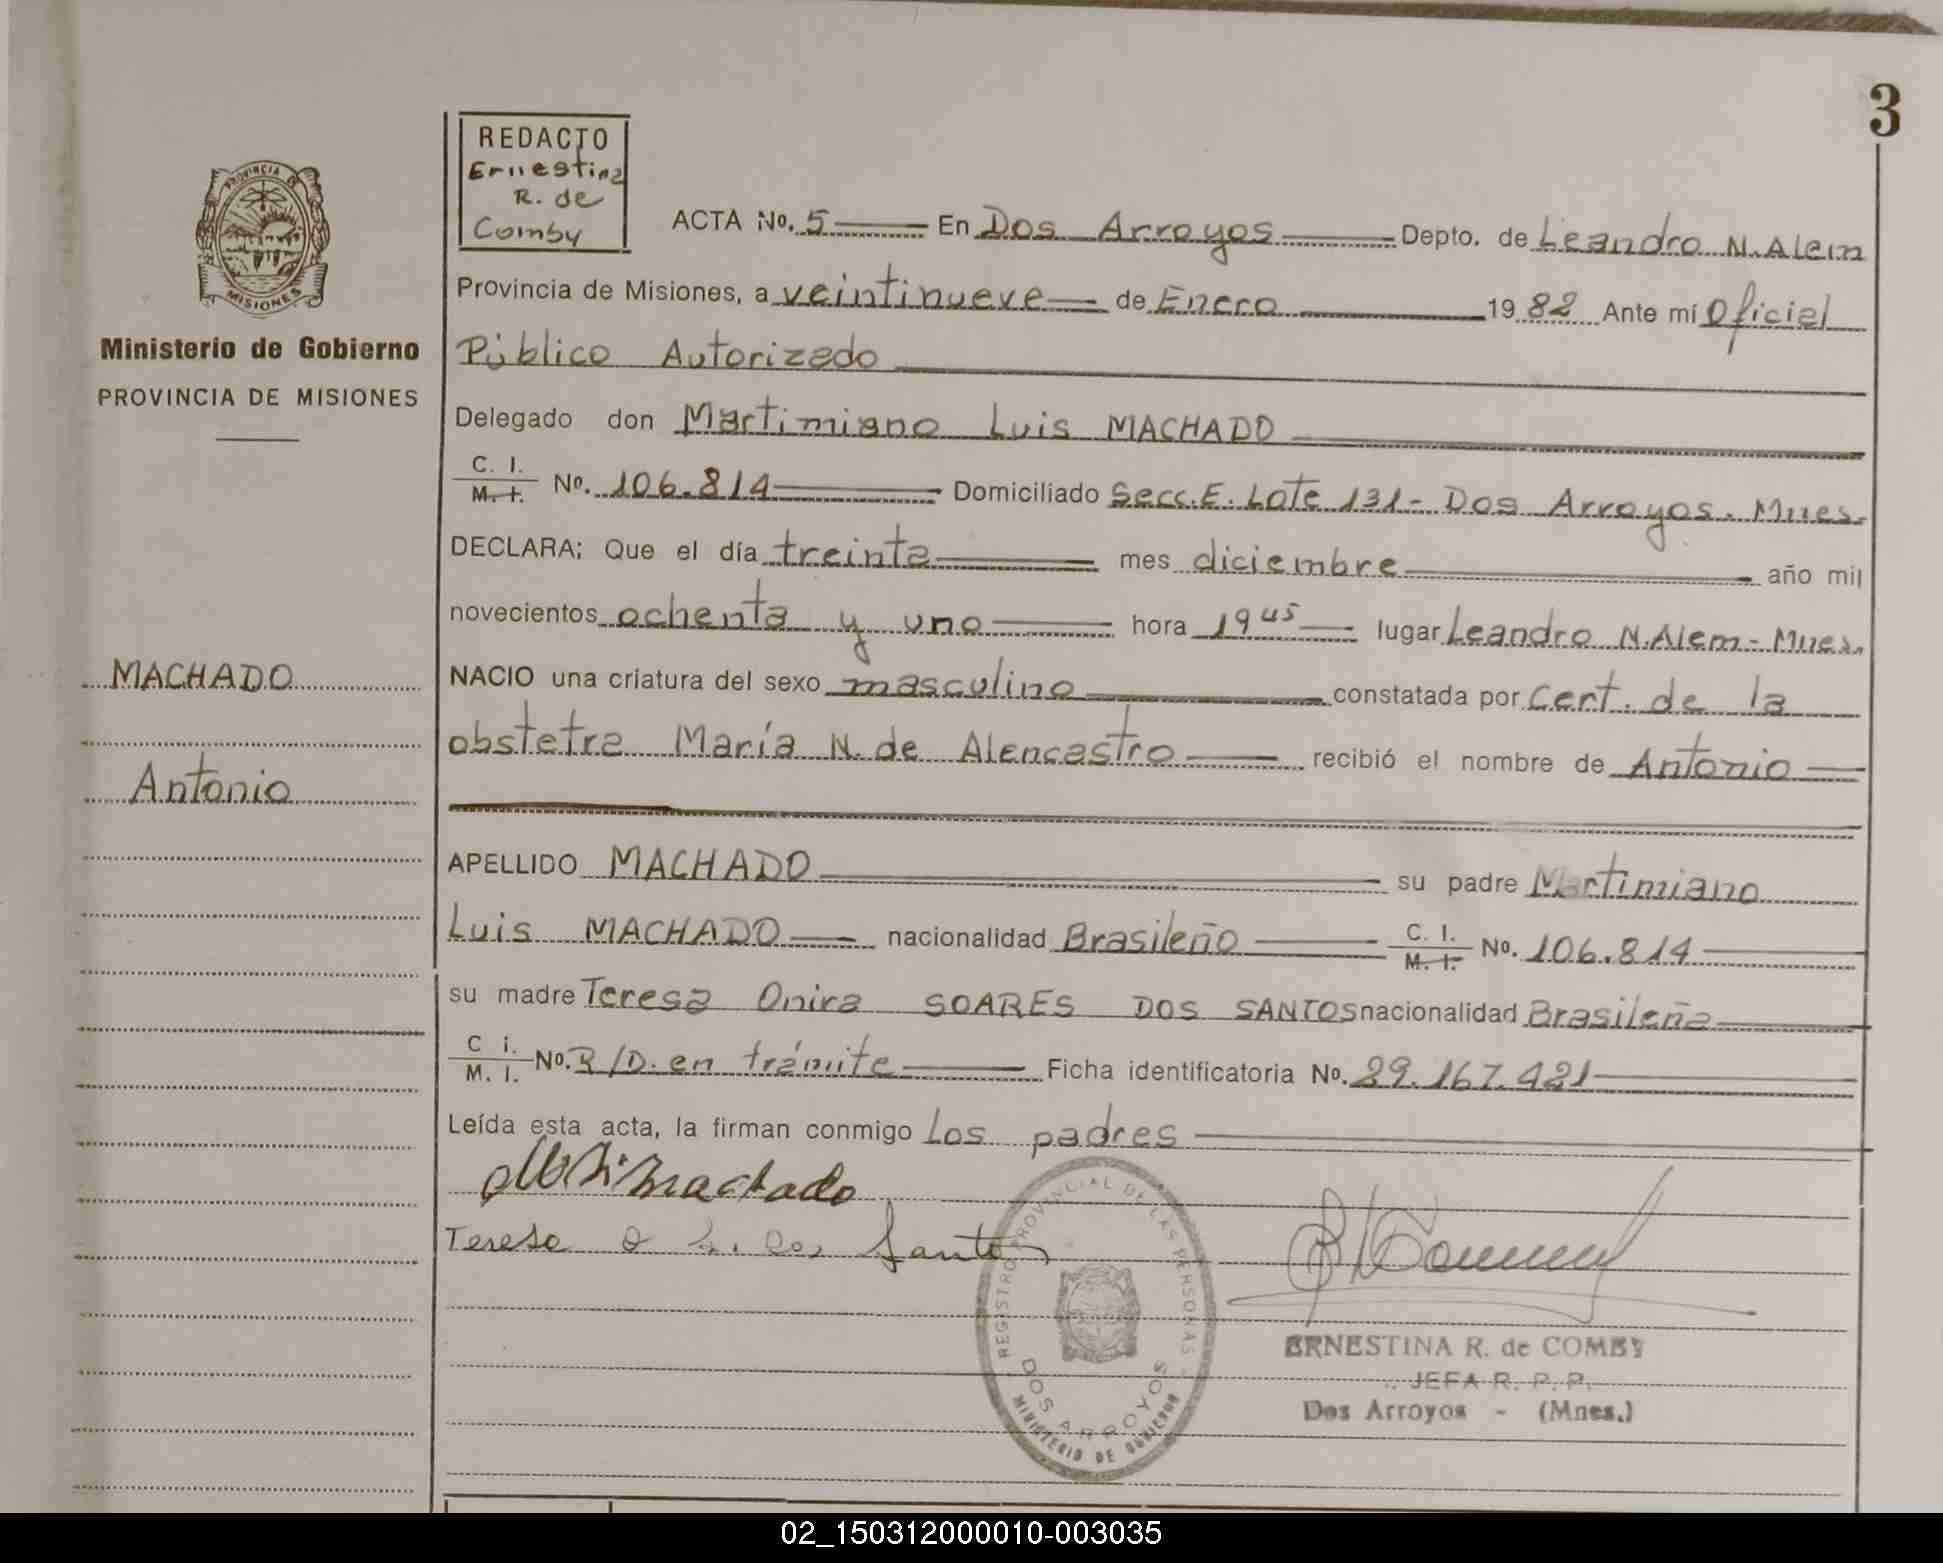 3
REDACTO
Ernestina
R. de
Comby
PROVINCIA DE
MISIONES
Ministerio de Gobierno
PROVINCIA DE MISIONES
MACHADO
Antonio
ACTA No. 5 En Dos Arroyos Depto. de Leandro N. Alem
Provincia de Misiones, a veintinueve de Enero 1982 Ante mí Oficial
Público Autorizado
Delegado don Martimiano Luis MACHADO
C. I.
M. I. No. 106.814 Domiciliado Secc. E. Lote 131- Dos Arroyos. Mnes.
DECLARA: Que el día treinta mes diciembre año mil
novecientos ochenta y uno hora 19 45 lugar Leandro N. Alem - Mnes.
NACIO una criatura del sexo masculino constatada por Cert. de la
obstetra María N. de Alencastro recibió el nombre de Antonio
APELLIDO MACHADO su padre Martimiano
Luis MACHADO nacionalidad Brasileño C. I.
M. I. No. 106.814
su madre Teresa Onira SOARES DOS SANTOS nacionalidad Brasileña
C i.
M. I. No. R/D. en trámite Ficha identificatoria No. 29.167.421
Leída esta acta, la firman conmigo Los padres
Machado
Teresa O S. dos Santos
REGISTRO PROVINCIAL DE LAS PERSONAS
DOS ARROYOS
MINISTERIO DE GOBIERNO
ERNESTINA R. de COMBY
JEFA R. P. P.
Dos Arroyos - (Mnes.)
02_150312000010-003035